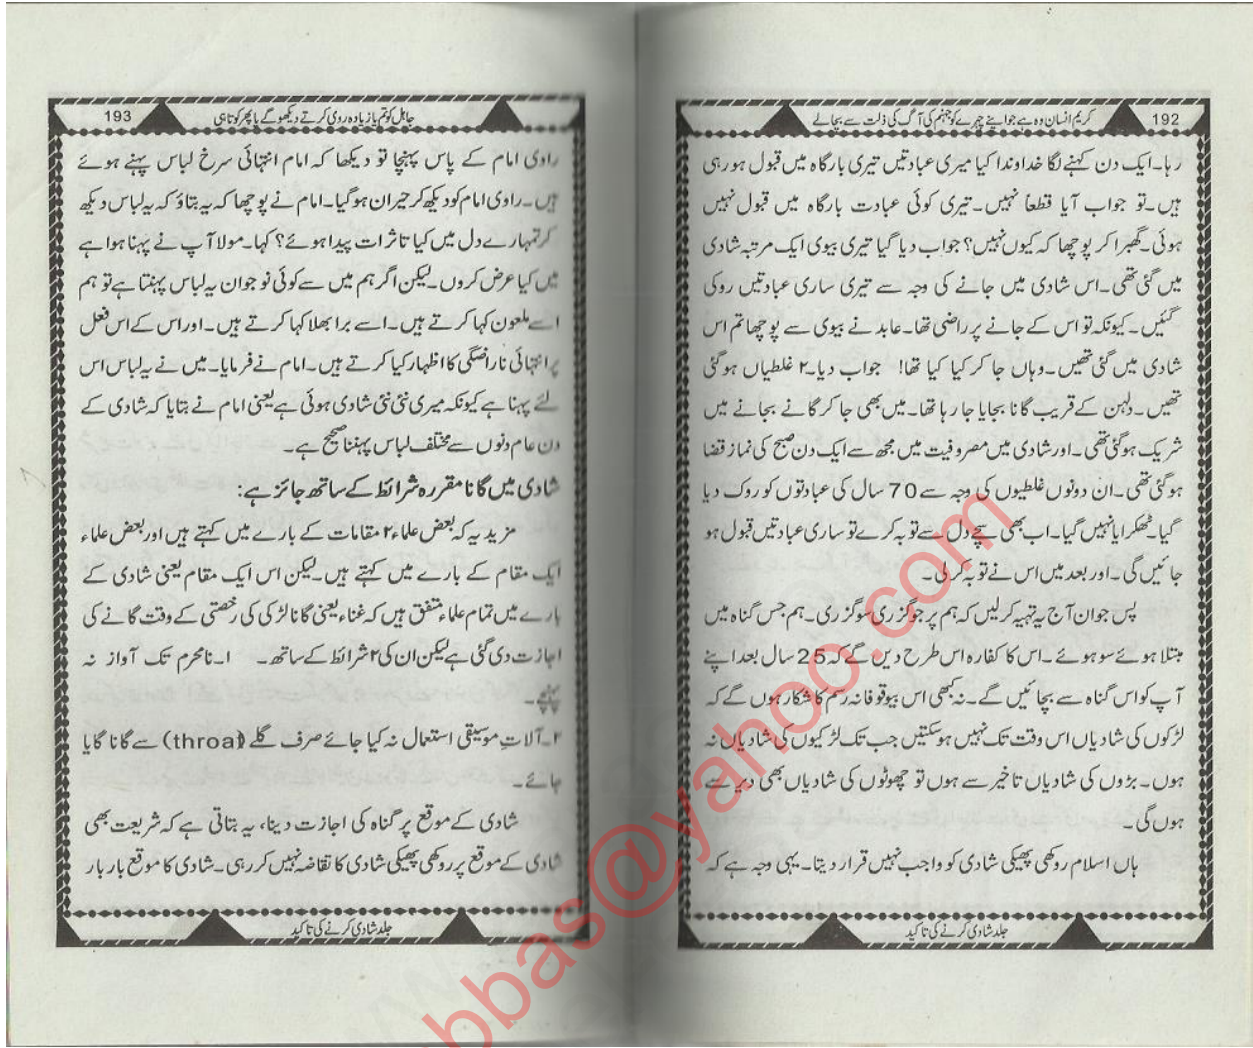 192
کریم انسان وہ ہے جو اپنے چہرے کو جہنم کی آگ کی ذلت سے بچالے
رہا۔ایک دن کہنے لگا خداوندا کیا میری عبادتیں تیری بارگاہ میں قبول ہو رہی
ہیں۔تو جواب آیا قطعاً نہیں۔تیری کوئی عبادت بارگاہ میں قبول نہیں
ہوئی۔گھبرا کر پوچھا کہ کیوں نہیں؟ جواب دیا گیا تیری بیوی ایک مرتبہ شادی
میں گئی تھی۔اس شادی میں جانے کی وجہ سے تیری ساری عبادتیں روکی
گئیں۔کیونکہ تو اس کے جانے پر راضی تھا۔عابد نے بیوی سے پوچھا تم اس
شادی میں گئی تھیں۔وہاں جا کر کیا کیا تھا! جواب دیا۔۲ غلطیاں ہو گئی
تھیں۔دلہن کے قریب گانا بجایا جا رہا تھا۔میں بھی جا کر گانے بجانے میں
شریک ہو گئی تھی۔اور شادی میں مصروفیت میں مجھ سے ایک دن صبح کی نماز قضا
ہو گئی تھی۔ان دونوں غلطیوں کی وجہ سے 70 سال کی عبادتوں کو روک دیا
گیا۔ٹھکرایا نہیں گیا۔اب بھی سچے دل سے توبہ کرے تو ساری عبادتیں قبول ہو
جائیں گی۔اور بعد میں اس نے توبہ کر لی۔
پس جوان آج یہ تہیہ کر لیں کہ ہم پر جو گزری سو گزری۔ہم جس گناہ میں
مبتلا ہوئے سو ہوئے۔اس کا کفارہ اس طرح دیں گے کہ 25 سال بعد اپنے
آپ کو اس گناہ سے بچائیں گے۔نہ کبھی اس بیوقوفانہ رسم کا شکار ہوں گے کہ
لڑکوں کی شادیاں اس وقت تک نہیں ہو سکتیں جب تک لڑکیوں کی شادیاں نہ
ہوں۔بڑوں کی شادیاں تاخیر سے ہوں تو چھوٹوں کی شادیاں بھی دیر سے
ہوں گی۔
ہاں اسلام روکھی پھیکی شادی کو واجب نہیں قرار دیتا۔یہی وجہ ہے کہ
جلد شادی کرنے کی تاکید
193
جاہل کو تم یا زیادہ روی کرتے دیکھو گے یا پھر کوتاہی
راوی امام کے پاس پہنچا تو دیکھا کہ امام انتہائی سرخ لباس پہنے ہوئے
ہیں۔راوی امام کو دیکھ کر حیران ہو گیا۔امام نے پوچھا کہ یہ بتاؤ کہ یہ لباس دیکھ
کر تمہارے دل میں کیا تاثرات پیدا ہوئے؟ کہا۔مولا آپ نے پہنا ہوا ہے
میں کیا عرض کروں۔لیکن اگر ہم میں سے کوئی نوجوان یہ لباس پہنتا ہے تو ہم
اسے ملعون کہا کرتے ہیں۔اسے برا بھلا کہا کرتے ہیں۔اور اس کے اس فعل
پر انتہائی ناراضگی کا اظہار کیا کرتے ہیں۔امام نے فرمایا۔میں نے یہ لباس اس
لئے پہنا ہے کیونکہ میری نئی نئی شادی ہوئی ہے یعنی امام نے بتایا کہ شادی کے
دن عام دنوں سے مختلف لباس پہننا صحیح ہے۔
شادی میں گانا مقررہ شرائط کے ساتھ جائز ہے:
مزید یہ کہ بعض علماء ۲ مقامات کے بارے میں کہتے ہیں اور بعض علماء
ایک مقام کے بارے میں کہتے ہیں۔لیکن اس ایک مقام یعنی شادی کے
بارے میں تمام علماء متفق ہیں کہ غناء یعنی گانا لڑکی کی رخصتی کے وقت گانے کی
اجازت دی گئی ہے لیکن ان کی ۲ شرائط کے ساتھ۔ ۱۔نامحرم تک آواز نہ
پہنچے۔
۲۔آلاتِ موسیقی استعمال نہ کیا جائے صرف گلے (throat) سے گانا گایا
جائے۔
شادی کے موقع پر گناہ کی اجازت دینا، یہ بتاتی ہے کہ شریعت بھی
شادی کے موقع پر روکھی پھیکی شادی کا تقاضہ نہیں کر رہی۔شادی کا موقع بار بار
جلد شادی کرنے کی تاکید
bbas@yahoo.com